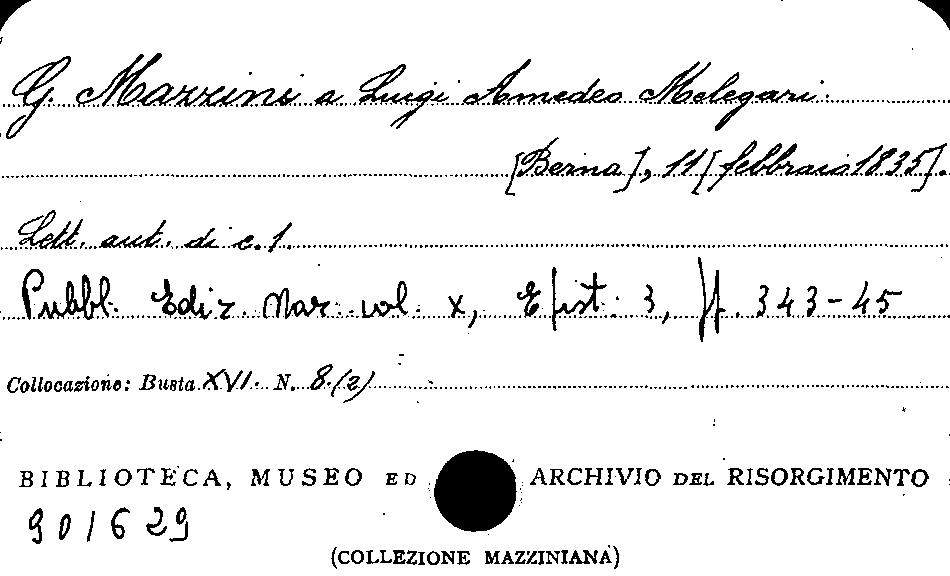 G. Mazzini a Luigi Amedeo Melegari.
[Berna], 11 [febbraio 1835].
Lett. aut. di c. 1.
Pubbl. Ediz. Naz. vol. X, Epist. 3, pp. 343-45
Collocazione: Busta XVI. N. 8.(2)
BIBLIOTECA, MUSEO ED ARCHIVIO DEL RISORGIMENTO
90/629
(COLLEZIONE MAZZINIANA)